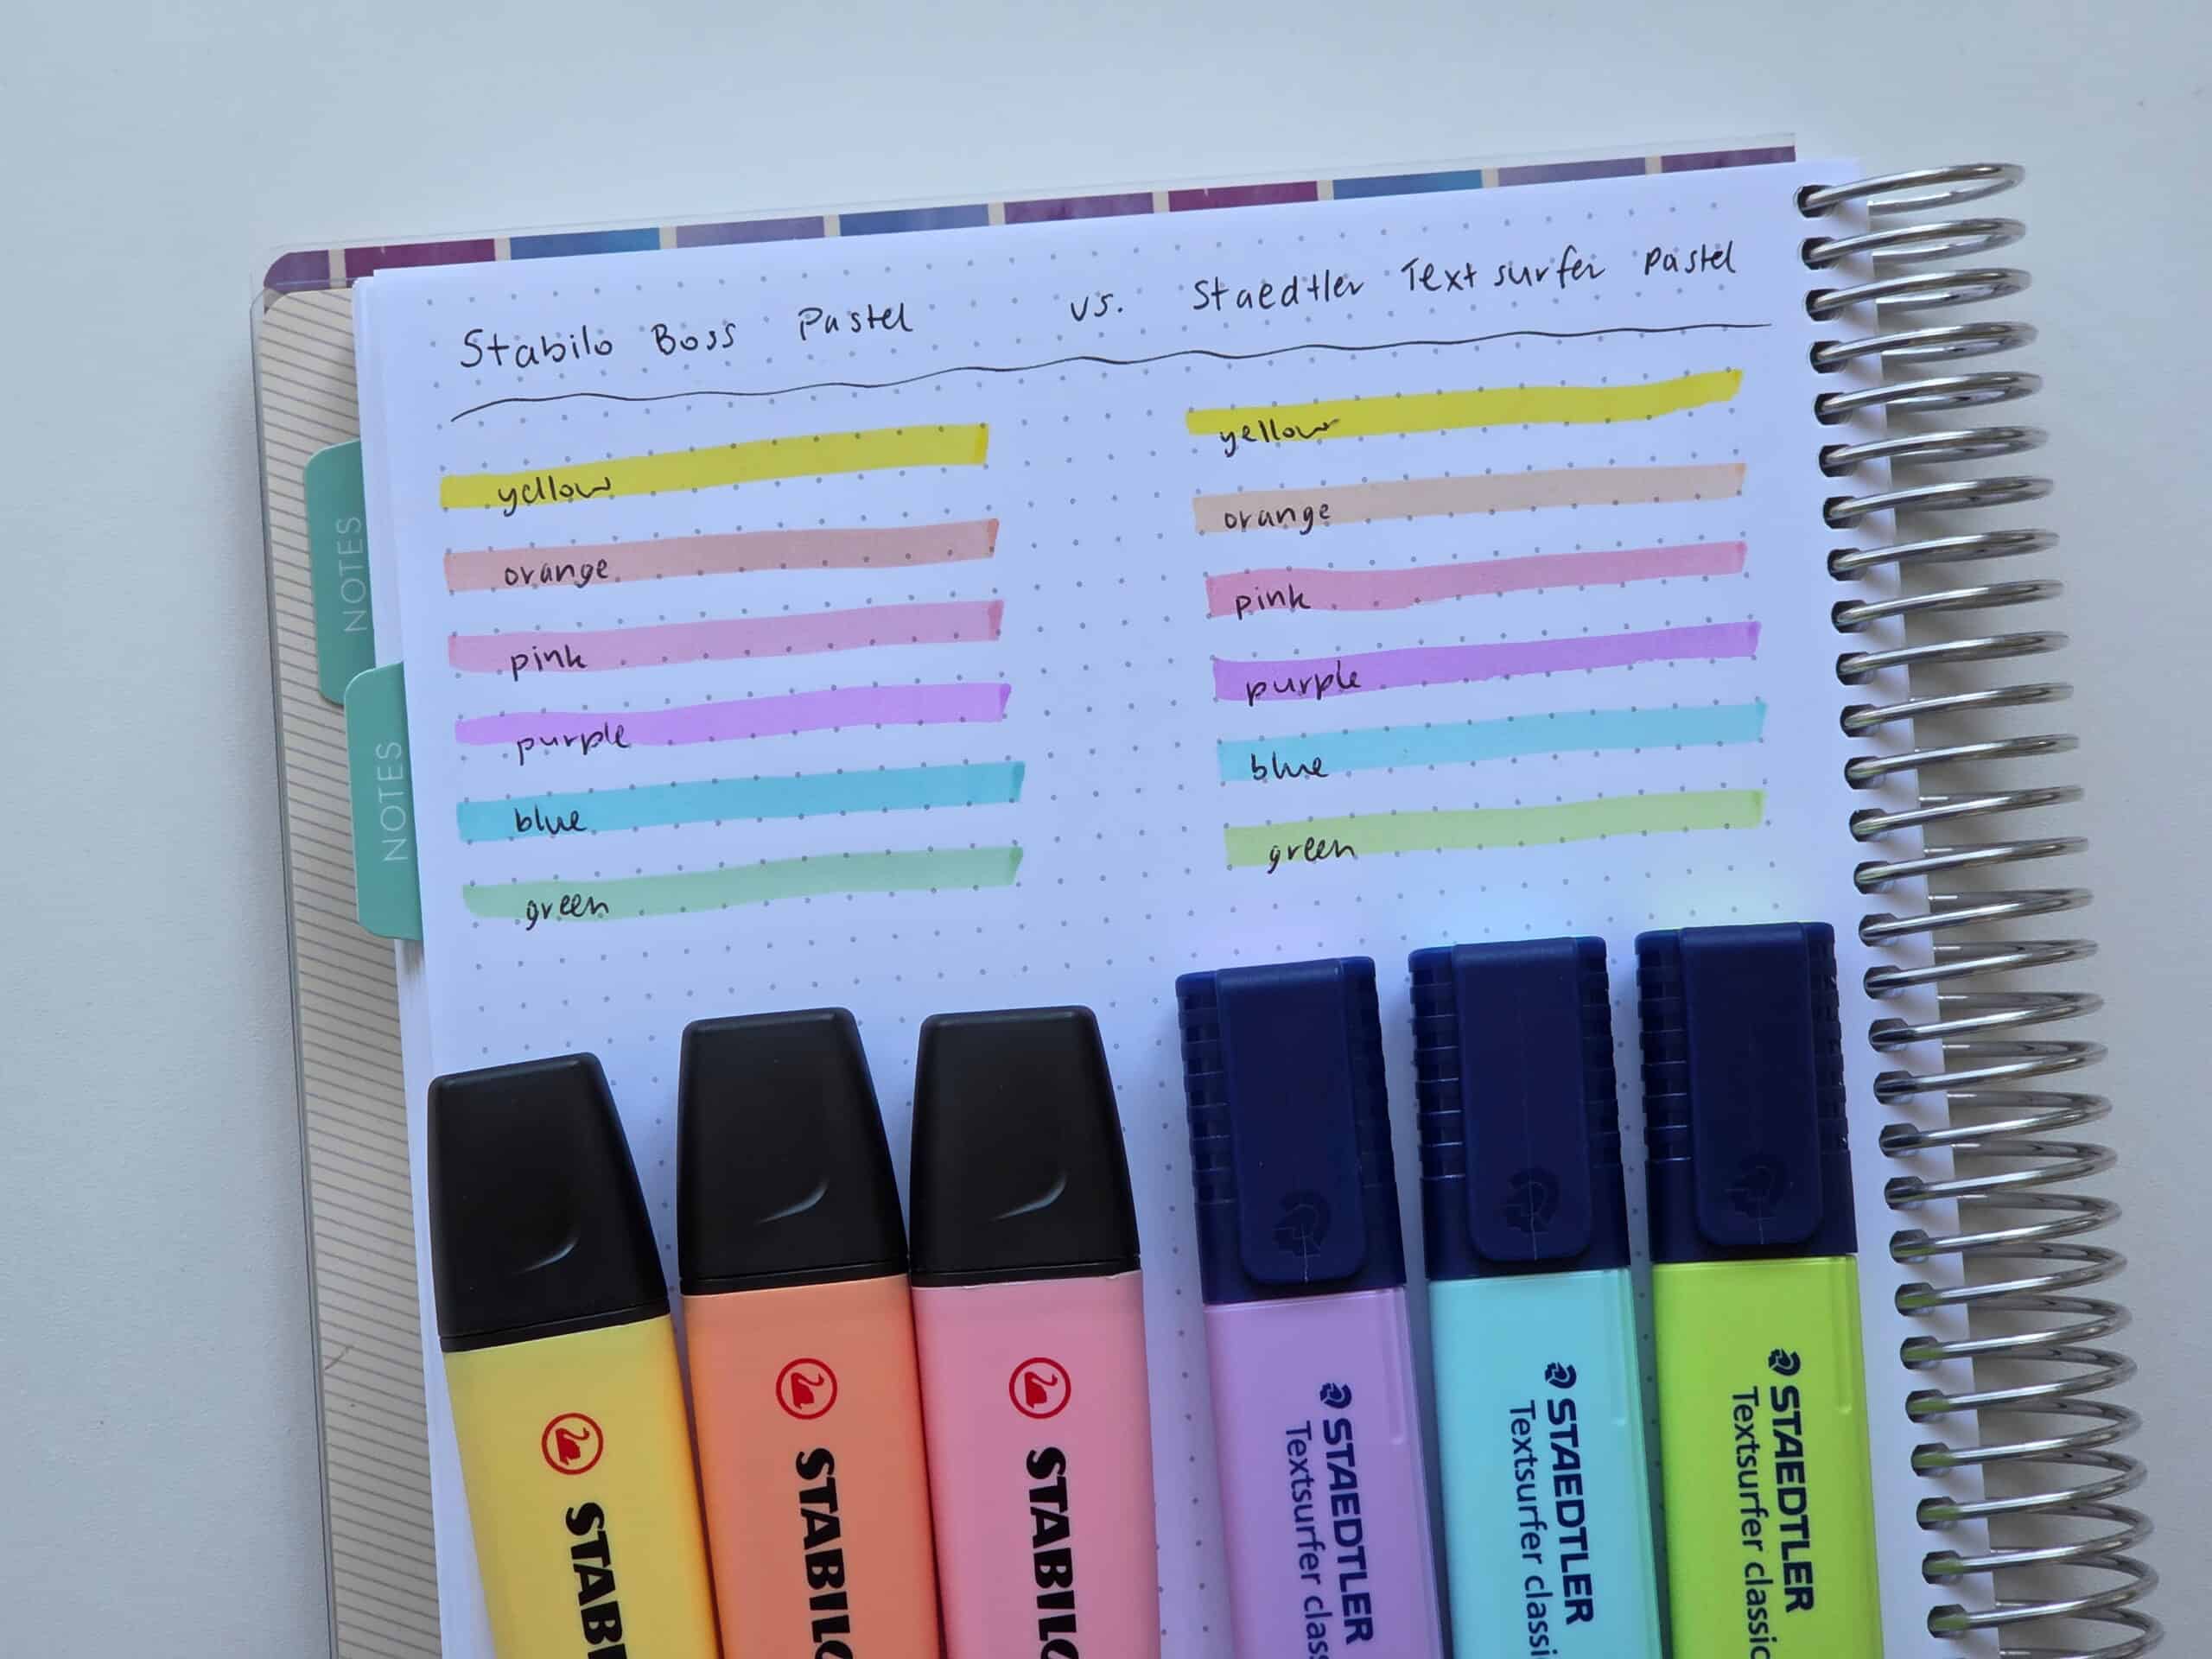 Stabilo Boss Pastel vs. Staedtler Textsurfer Pastel
yellow
orange
pink
purple
blue
green
yellow
orange
pink
purple
blue
green
NOTES
NOTES
STABI
STABILO
STABILO
STAEDTLER
Textsurfer clas
STAEDTLER
Textsurfer classi
STAEDTLER
Textsurfer classic